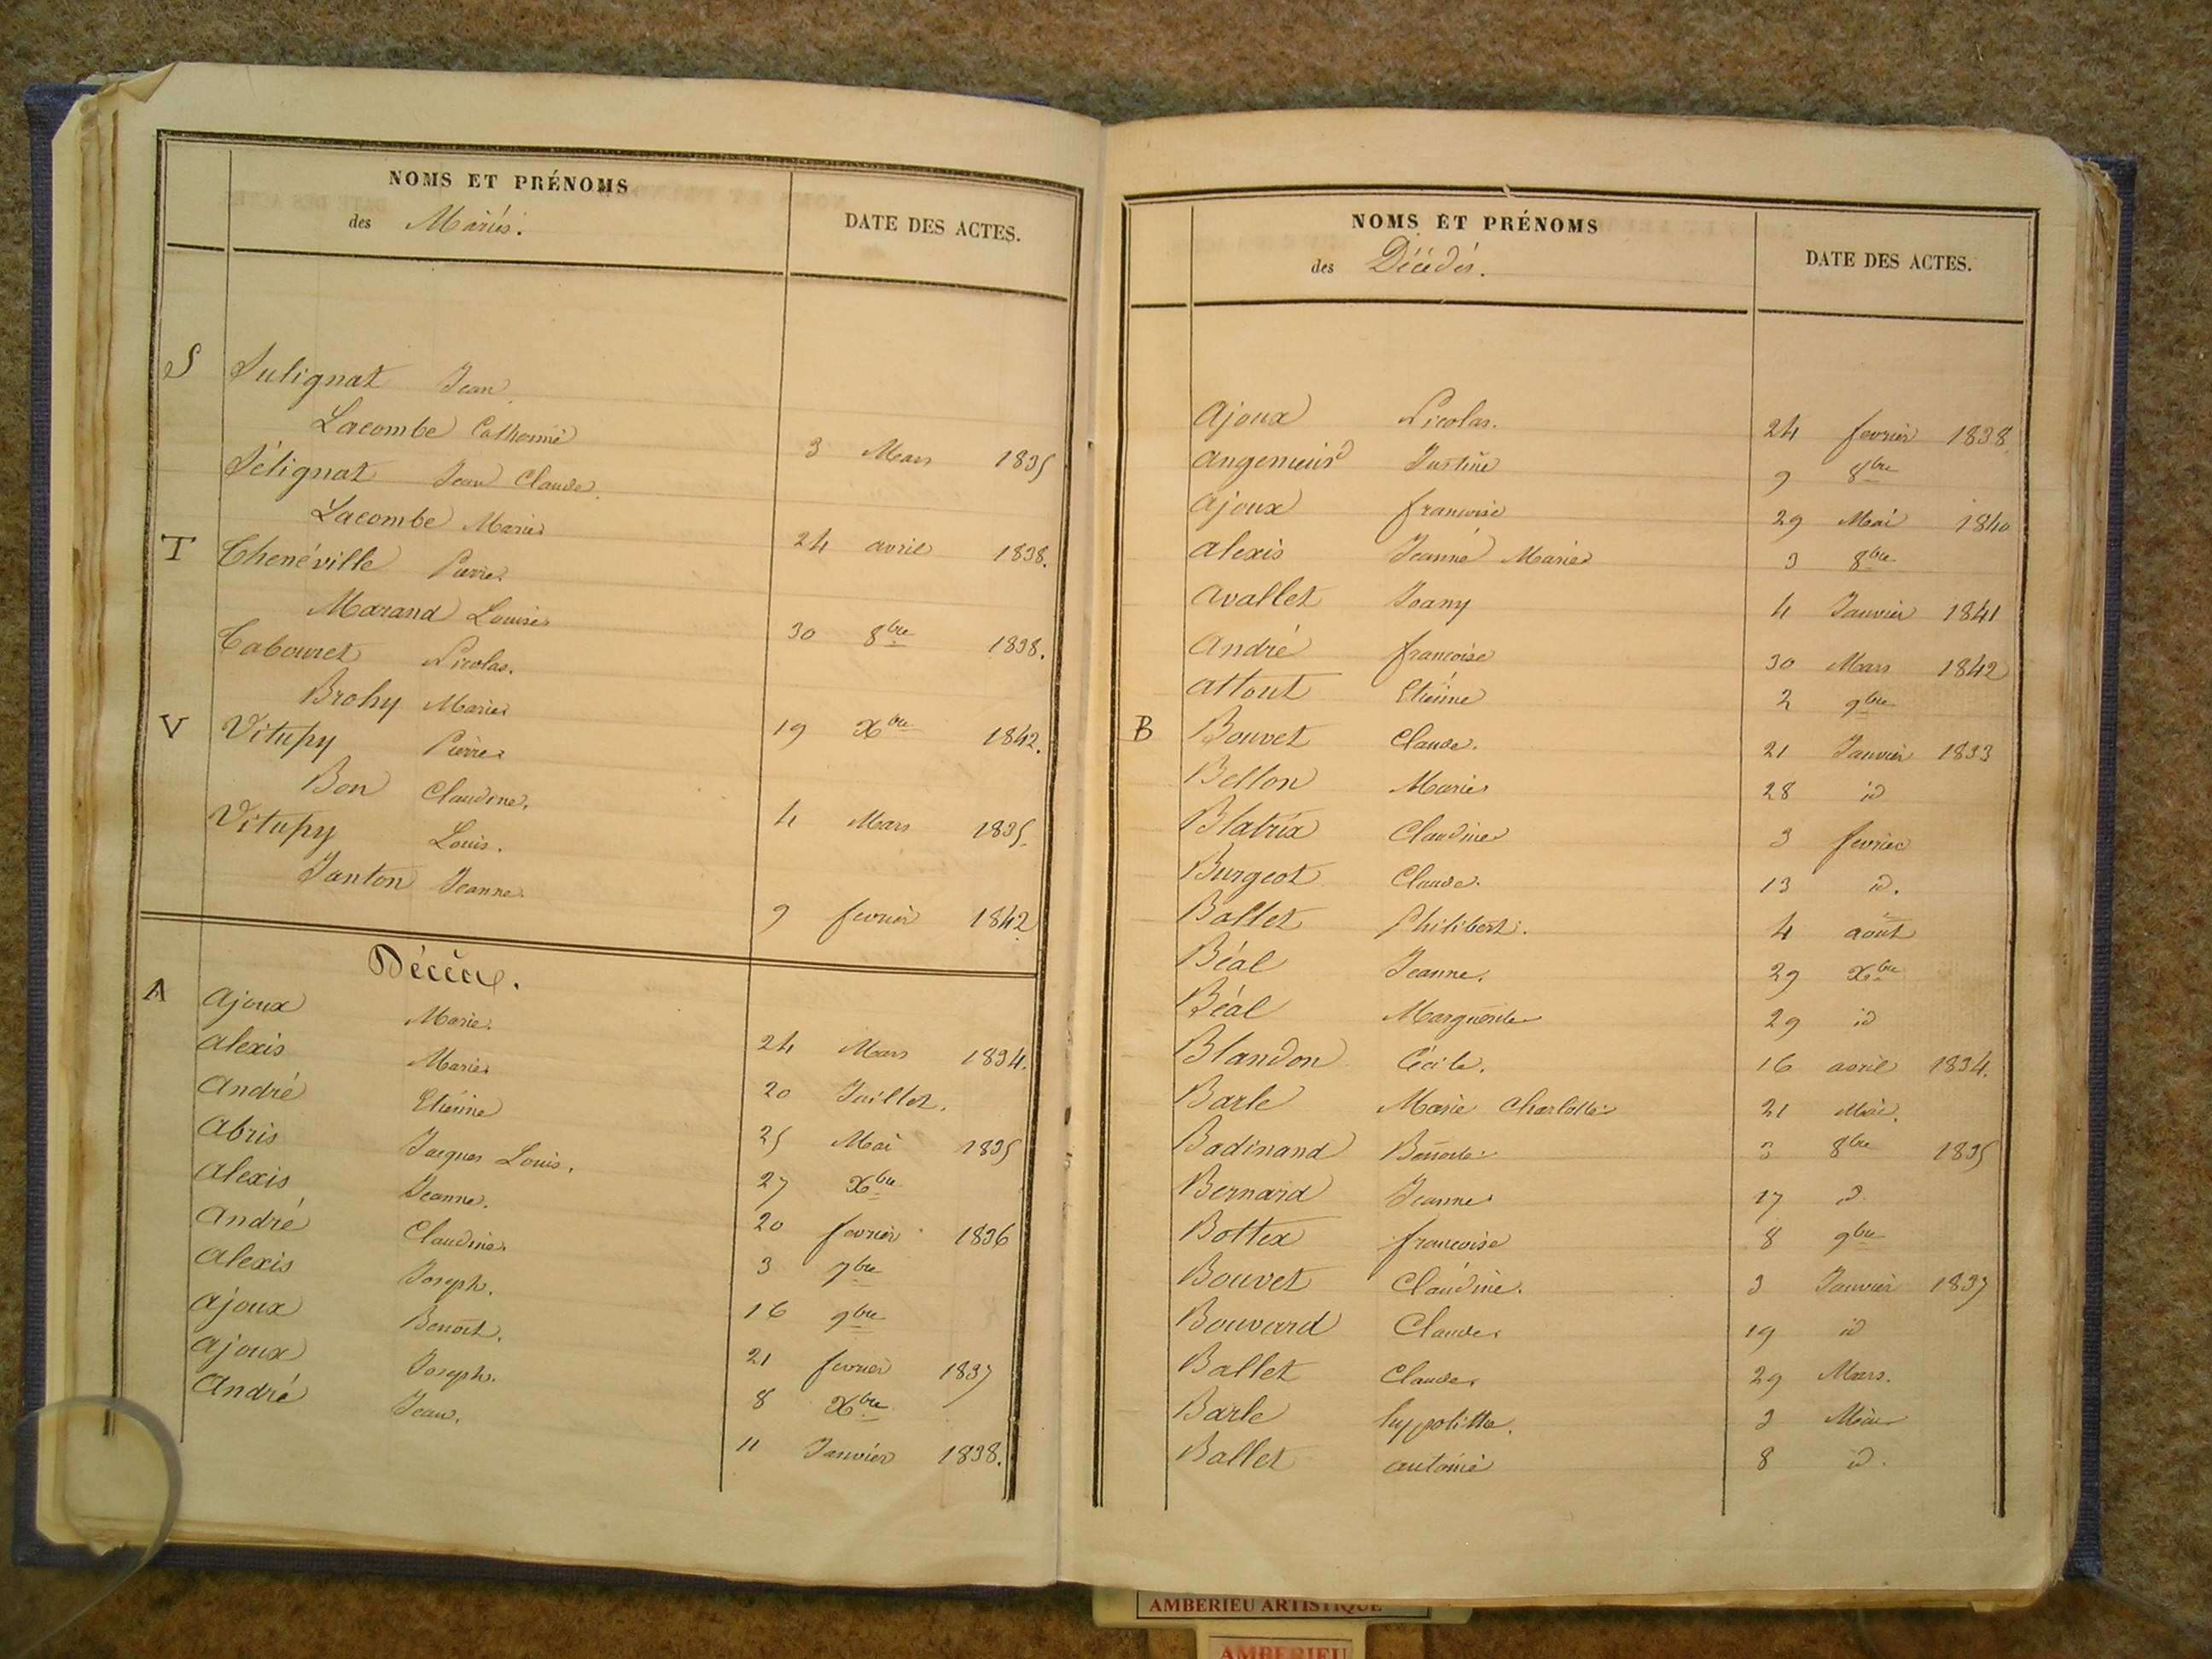 NOMS ET PRÉNOMS
des Mariés.
DATE DES ACTES.
S Sulignat Jean
Lacombe Catherine 3 Mars 1835
Sélignat Jean Claude
Lacombe Marie 24 avril 1838.
T Thenéville Pierre
Marand Louise 30 8bre 1838.
Tabouret Nicolas.
Brohy Marie 19 Xbre 1842.
V Vitupy Pierre
Bon Claudine. 4 Mars 1835
Vitupy Louis.
Janton Jeanne 9 fevrier 1842
Décès.
A Ajoux Marie. 24 Mars 1834.
Alexis Marie 20 Juillet.
André Etienne 25 Mai 1835
Abris Jacques Louis. 27 Xbre
Alexis Jeanne. 20 fevrier 1836
André Claudine 3 7bre
Alexis Joseph. 16 9bre
Ajoux Benoit. 21 fevrier 1837
Ajoux Joseph. 8 Xbre
André Jean. 11 Janvier 1838.
NOMS ET PRÉNOMS
des Décédés.
DATE DES ACTES.
Ajoux Nicolas. 24 fevrier 1838
Justine 9 8bre
Ajoux francoise 29 Mai 1840
Alexis Jeanne Marie 3 8bre
Avallet Joany 4 Janvier 1841
André francoise 30 Mars 1842
Attout Etienne 2 9bre
B Bouvet Claude. 21 Janvier 1833
Bellon Marie 28 id
Blatrix Claudine 3 fevrier
Burgeot Claude. 13 id.
Ballet Philibert. 4 aout
Béal Jeanne. 29 Xbre
Béal Marguerite 29 id
Blandon Cécile. 16 avril 1834.
Barle Marie Charlotte 21 Mai.
Badinand Benoite 3 8bre 1835
Bernard Jeanne 17 id
Bottex francoise 8 9bre
Bouvet Claudine. 3 Janvier 1837
Bouvard Claude 19 id
Ballet Claude 29 Mars.
Barle hyppolitte. 3 Mai
Ballet antoine 8 id.
AMBERIEU ARTISTIQUE
AMBERIEU